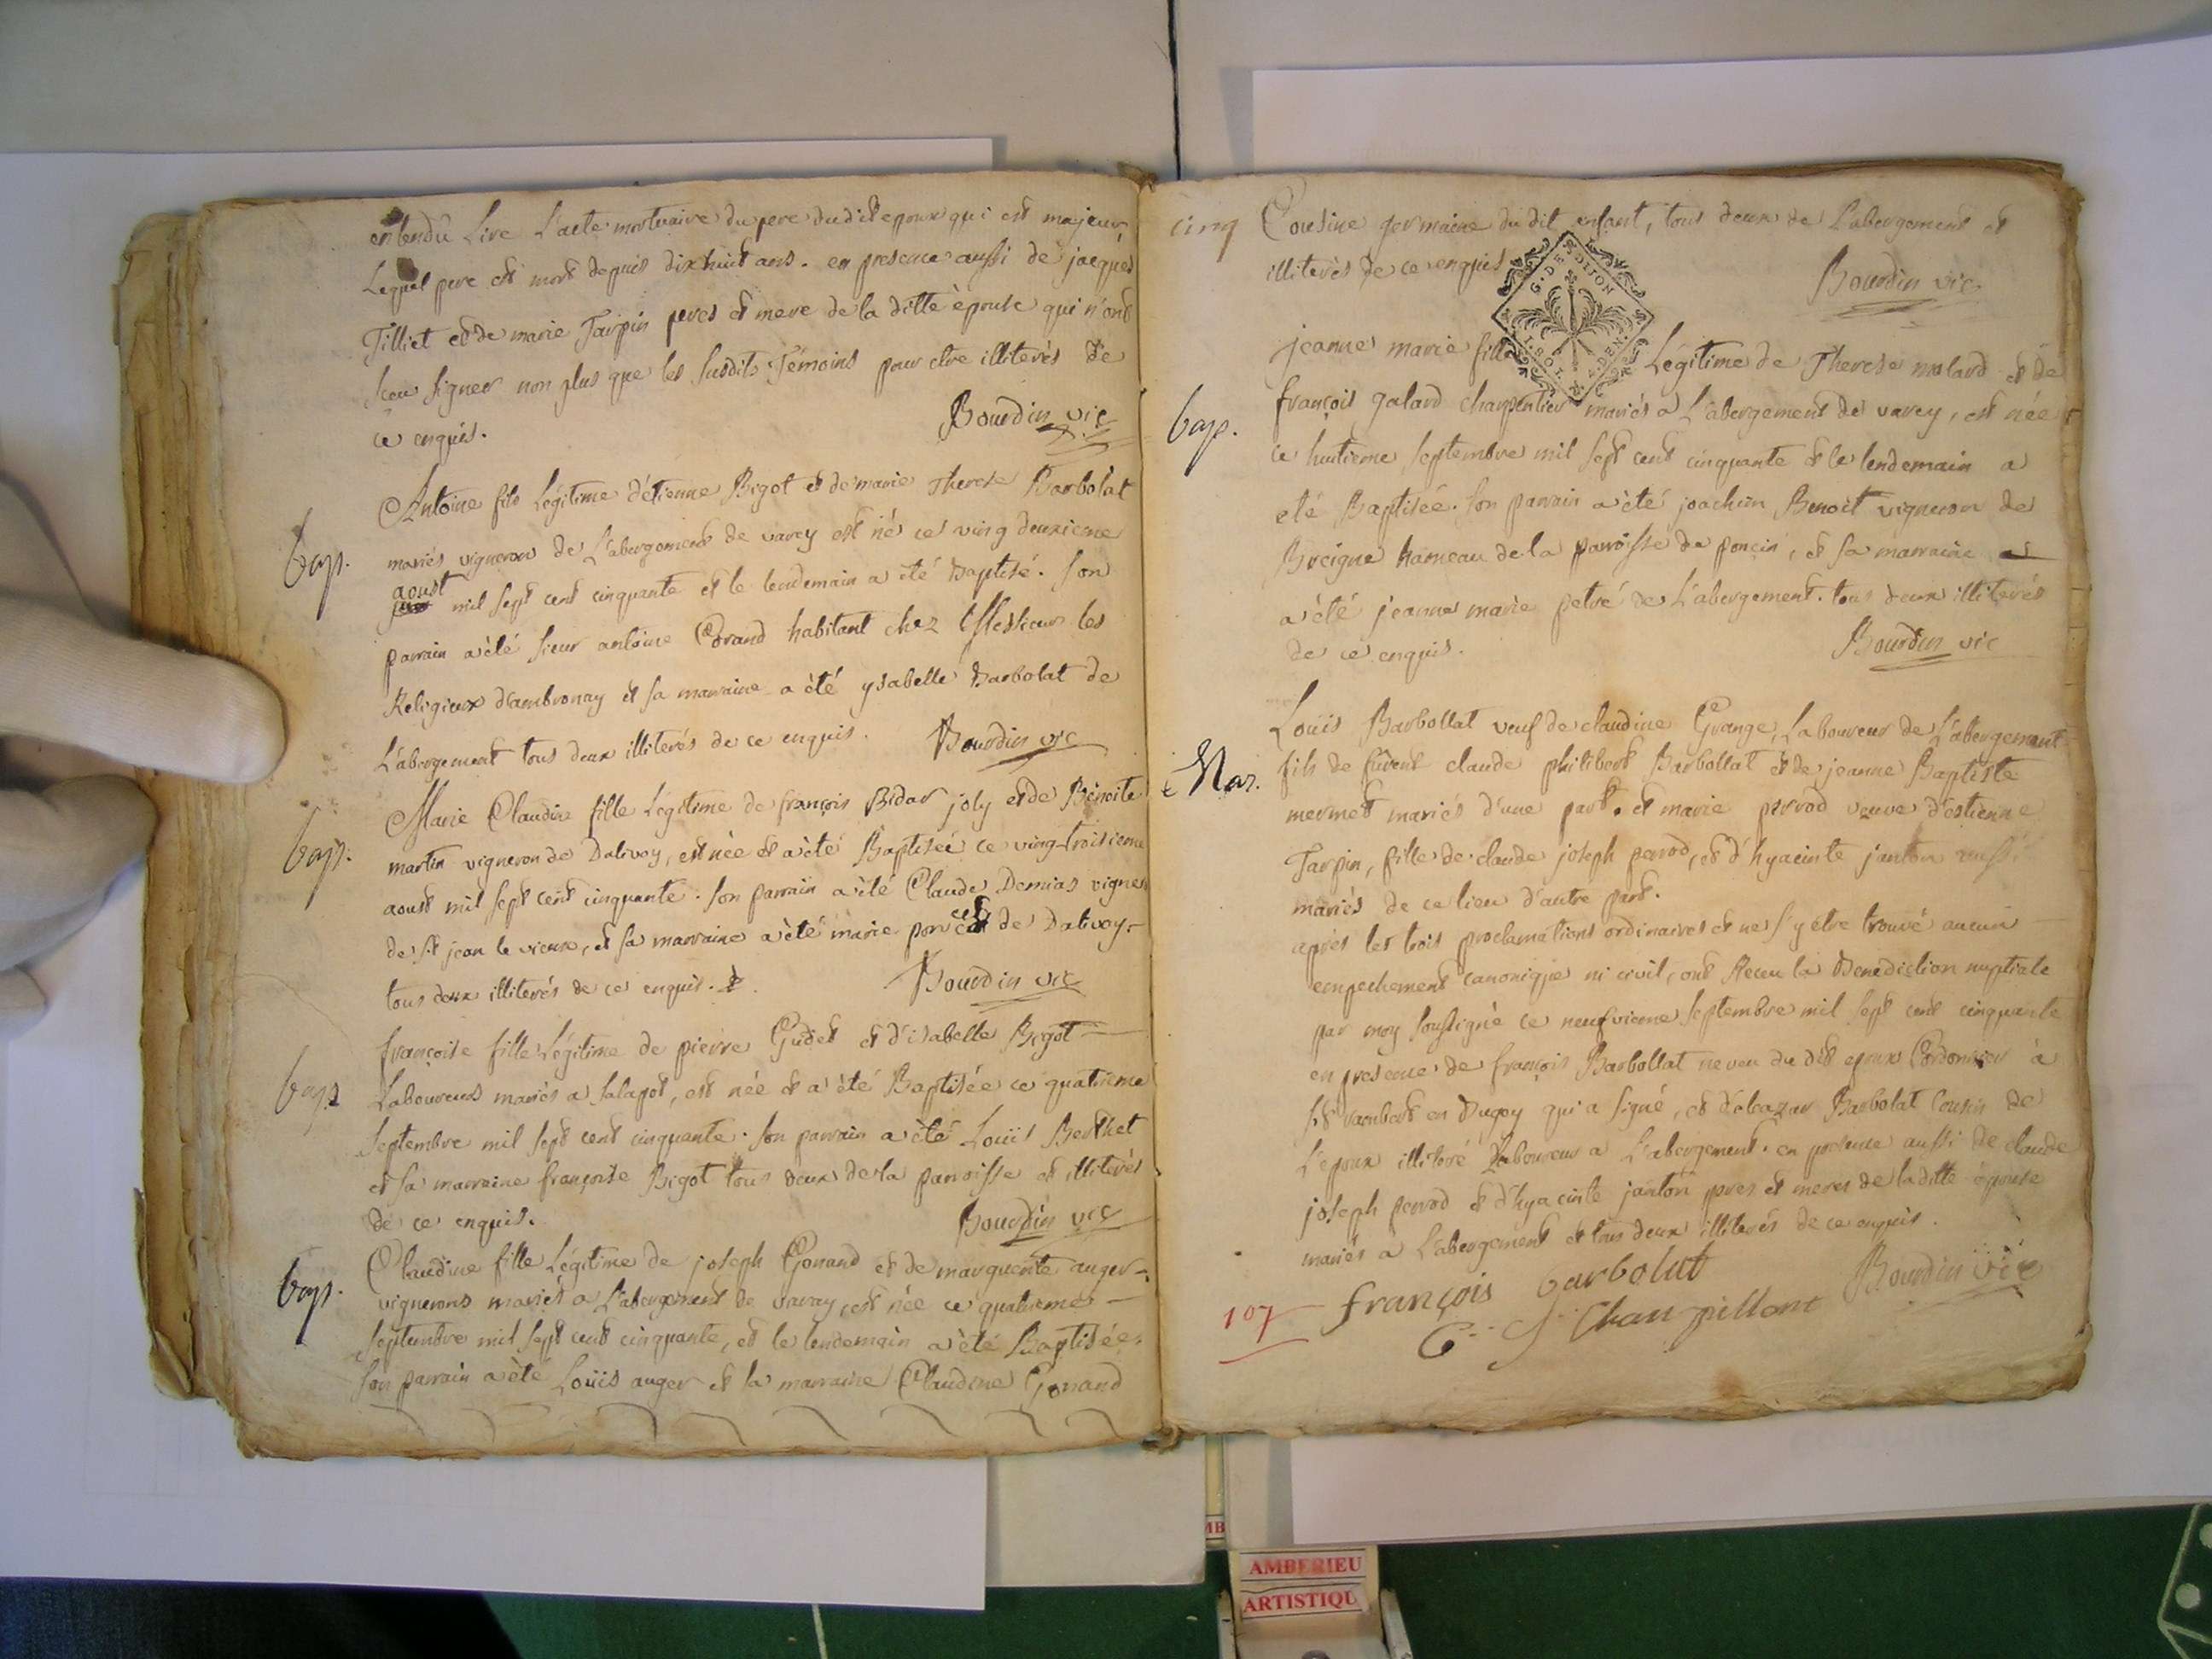 entendû Lire L'acte mortuaire du pere dudit epoux qui est majeur
Lequel pere est mort depuis dixhuit ans. en presence aussi de jacques
Tilliet et de marie Tarpin peres et mere de la ditte épouse qui n'ont
sceu signer non plus que les susdits Témoins pour etre illiterés de
ce enquis.
Bourdin vic
bap.
Antoine fils Légitime d'étienne Bigot et de marie Therese Barbolat
mariés vignerons de L'abergement de varey est né ce ving deuxieme
aoust
mil sept cent cinquante et le lendemain a été Baptisé. son
parrain a été sieur antoine Corand habitant chez Messieurs les
Religieux d'ambronay et sa marraine a été ysabelle Barbolat de
L'abergement tous deux illiterés de ce enquis.
Bourdin vic
bap.
Marie Claudine fille Légitime de françois Bidar joly et de Benoite
martin vigneron de Dalivoy, est née et a été Baptisée ce ving-troisieme
aoust mil sept cent cinquante. son parrain a été Claude Demias vigner
de st jean le vieux, et sa marraine a été marie poncet de Dalivoy.
tous deux illiterés de ce enquis.
Bourdin vic
bap
françoise fille Légitime de pierre Gudet et d'isabelle Bigot
Laboureurs mariés a salapot, est née et a été Baptisée ce quatrieme
septembre mil sept cent cinquante. son parrain a été Loüis Berthet
et sa marraine françoise Bigot tous deux de la parroisse et illiterés
de ce enquis.
Bourdin vic
bap.
Claudine fille Légitime de joseph Gonand et de marguerite auger
vignerons mariés a L'abergement de varay, est née ce quatrieme
septembre mil sept cent cinquante, et le lendemain a été Baptisée.
son parrain a été Loüis auger et sa marraine Claudine Gonand
cinq
Cousine germaine du dit enfant, tous deux de L'abergement et
illiterés de ce enquis
G. DE DIJON
Bourdin vic
bap.
jeanne marie fille Légitime de Therese molard et de
françois galard charpentier mariés a L'abergement de varey, est née
ce huitieme septembre mil sept cent cinquante et le lendemain a
été Baptisée. son parrain a été joachim Benoit vigneron de
Breigne hameau de la parroisse de poncin, et sa marraine
a été jeanne marie petré de L'abergement. tous deux illiterés
de ce enquis.
Bourdin vic
Mar.
Loüis Barbollat veuf de claudine Grange, Laboureur de L'abergement
fils de fûrent claude philibert Barbollat et de jeanne Baptiste
mermet mariés d'une part. et marie perrod veuve d'estienne
Tarpin, fille de claude joseph perrod, et d'hyacinte janton aussi
mariés de ce lieu d'autre part.
après les trois proclamations ordinaires et ne s'y etre trouvé aucun
empechement canonique ni civil, ont Receu la Benediction nuptiale
par moy soussigné ce neufvieme septembre mil sept cent cinquante
en presence de françois Barbollat neveu du dit epoux Cordonnier à
st rambert en Bugey qui a signé, et d'eleazar Barbolat Cousin de
L'epoux illiteré Laboureur a L'abergement. en presence aussi de claude
joseph perrod et d'hyacinte janton peres et meres de laditte épouse
mariés a L'abergement et tous deux illiterés de ce enquis.
françois barbolat
Bourdin vic
107
Champillont
AMBERIEU
ARTISTIQU